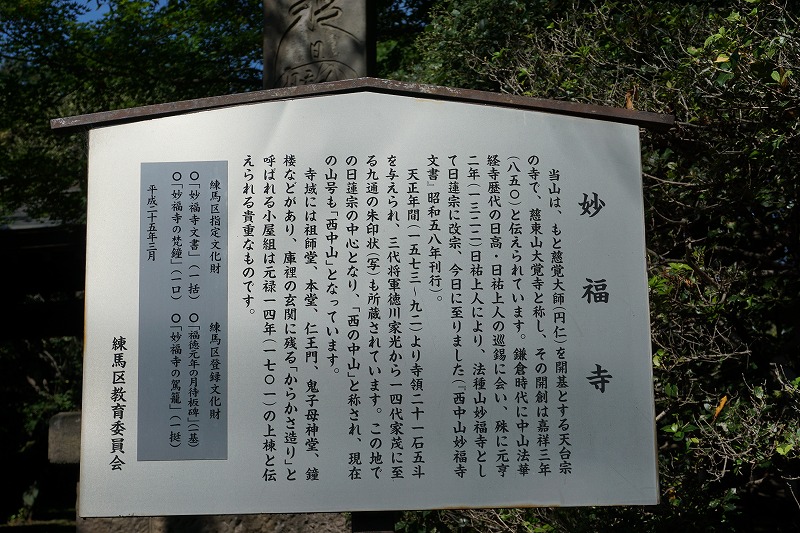 妙福寺
当山は、もと慈覚大師(円仁)を開基とする天台宗
の寺で、慈東山大覚寺と称し、その開創は嘉祥三年
(八五〇)と伝えられています。鎌倉時代に中山法華
経寺歴代の日高・日祐上人の巡錫に会い、殊に元亨
二年(一三二二)日祐上人により、法種山妙福寺とし
て日蓮宗に改宗、今日に至りました(『西中山妙福寺
文書』昭和五八年刊行)。
天正年間(一五七三~九二)より寺領二十一石五斗
を与えられ、三代将軍徳川家光から一四代家茂に至
る九通の朱印状(写)も所蔵されています。この地で
の日蓮宗の中心となり、「西の中山」と称され、現在
の山号も「西中山」となっています。
寺域には祖師堂、本堂、仁王門、鬼子母神堂、鐘
楼などがあり、庫裡の玄関に残る「からかさ造り」と
呼ばれる小屋組は元禄一四年(一七〇一)の上棟と伝
えられる貴重なものです。
練馬区指定文化財
〇「妙福寺文書」(一括)
〇「妙福寺の梵鐘」(一口)
練馬区登録文化財
〇「福徳元年の月待板碑」(一基)
〇「妙福寺の駕籠」(一挺)
平成二十五年三月
練馬区教育委員会